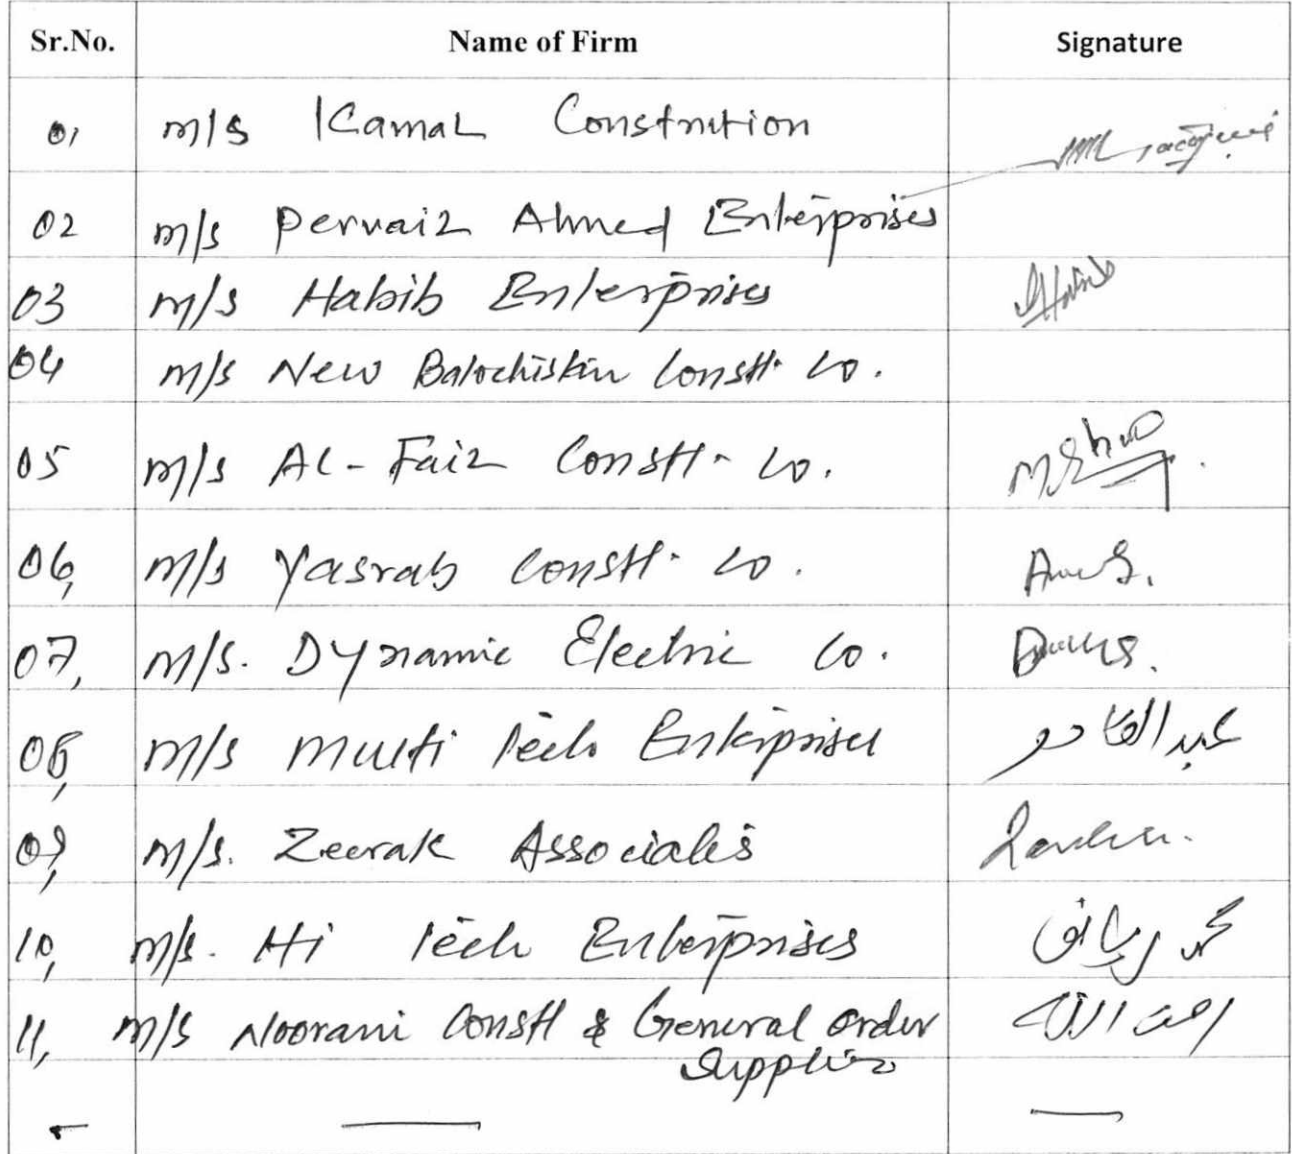 Sr.No. Name of Firm Signature
01, m/s Kamal Constrution
02 m/s Pervaiz Ahmed Enterprises
03 m/s Habib Enterprises
04 m/s New Balochistan Constt. Co.
05 m/s AL-Faiz Constt. Co.
06, m/s Yasrab Constt. Co.
07, m/s. Dynamic Electric Co.
08, m/s Multi Tech Enterprises عبدالقادر
09, m/s. Zeerak Associates
10, m/s. Hi Tech Enterprises محمد ریاض
11, m/s Noorani Constt & General order
Supplier